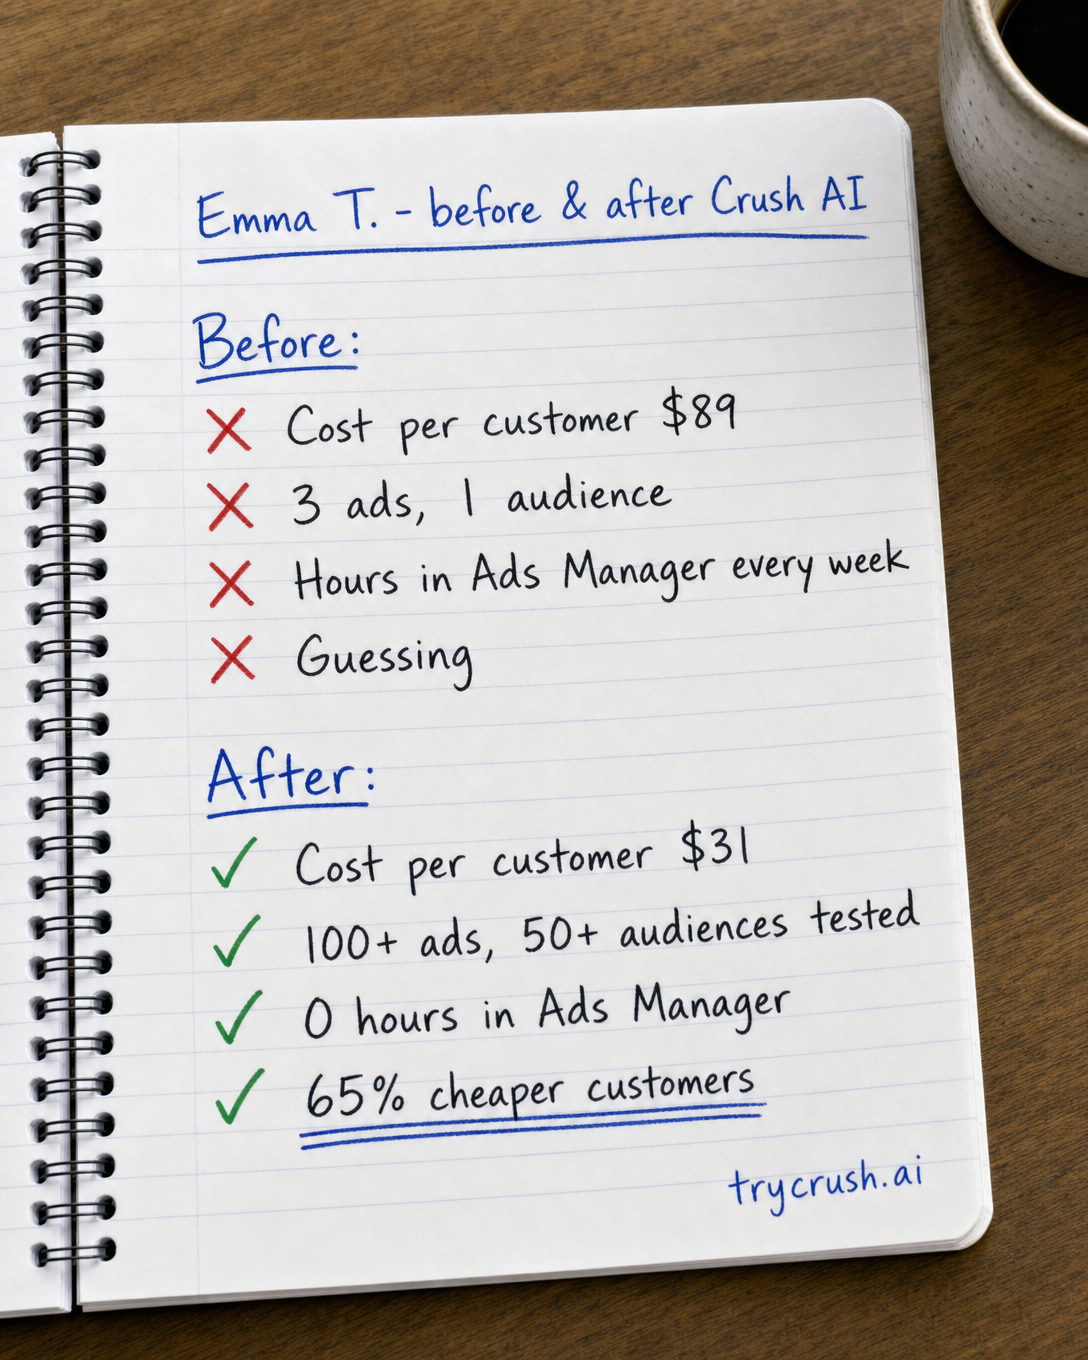 Emma T. - before & after Crush AI
Before:
Cost per customer $89
3 ads, 1 audience
Hours in Ads Manager every week
Guessing
After:
Cost per customer $31
100+ ads, 50+ audiences tested
0 hours in Ads Manager
65% cheaper customers
trycrush.ai